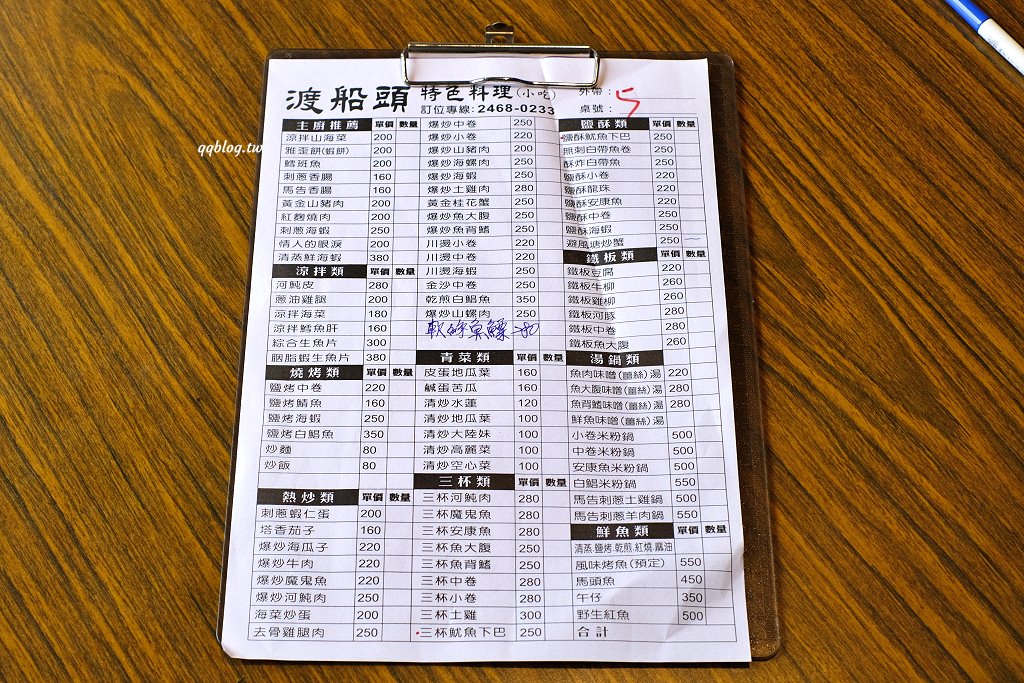 渡船頭 特色料理(小吃) 外帶:
訂位專線: 2468-0233 桌號: 5
qqblog.tw
主廚推薦 單價 數量
涼拌山海菜 200
雅歪餅(蝦餅) 200
鱈班魚 200
刺蔥香腸 160
馬告香腸 160
黃金山豬肉 200
紅麴燒肉 200
刺蔥海蝦 250
情人的眼淚 200
清蒸鮮海蝦 380
涼拌類 單價 數量
河魨皮 280
蔥油雞腿 200
涼拌海菜 180
涼拌鱈魚肝 160
綜合生魚片 300
胭脂蝦生魚片 380
燒烤類 單價 數量
鹽烤中卷 220
鹽烤鯖魚 160
鹽烤海蝦 250
鹽烤白鯧魚 350
炒麵 80
炒飯 80
熱炒類 單價 數量
刺蔥蝦仁蛋 200
塔香茄子 160
爆炒海瓜子 220
爆炒牛肉 220
爆炒魔鬼魚 220
爆炒河魨肉 250
海菜炒蛋 200
去骨雞腿肉 250
爆炒中卷 250
爆炒小卷 220
爆炒山豬肉 200
爆炒海螺肉 250
爆炒海蝦 250
爆炒土雞肉 280
黃金桂花蟹 250
爆炒魚大腹 250
爆炒魚背鰭 250
川燙小卷 220
川燙中卷 220
川燙海蝦 250
金沙中卷 250
乾煎白鯧魚 350
爆炒山螺肉 250
魚鰾 280
青菜類 單價 數量
皮蛋地瓜葉 160
鹹蛋苦瓜 160
清炒水蓮 120
清炒地瓜葉 100
清炒大陸妹 100
清炒高麗菜 100
清炒空心菜 100
三杯類 單價 數量
三杯河魨肉 280
三杯魔鬼魚 280
三杯安康魚 280
三杯魚大腹 250
三杯魚背鰭 250
三杯中卷 280
三杯小卷 280
三杯土雞 300
三杯魷魚下巴 250
鹽酥類 單價 數量
鹽酥魷魚下巴 250
無刺白帶魚卷 250
酥炸白帶魚 250
鹽酥小卷 220
鹽酥龍珠 220
鹽酥安康魚 250
鹽酥中卷 250
鹽酥海蝦 250
避風塘炒蟹 250
鐵板類 單價 數量
鐵板豆腐 220
鐵板牛柳 260
鐵板雞柳 260
鐵板河豚 280
鐵板中卷 280
鐵板魚大腹 260
湯鍋類 單價 數量
魚肉味噌(薑絲)湯 220
魚大腹味噌(薑絲)湯 280
魚背鰭味噌(薑絲)湯 280
鮮魚味噌(薑絲)湯
小卷米粉鍋 500
中卷米粉鍋 500
安康魚米粉鍋 500
白鯧米粉鍋 550
馬告刺蔥土雞鍋 500
馬告刺蔥羊肉鍋 550
鮮魚類 單價 數量
清蒸.鹽烤.乾煎.紅燒.麻油
風味烤魚(預定) 550
馬頭魚 450
午仔 350
野生紅魚 500
合計